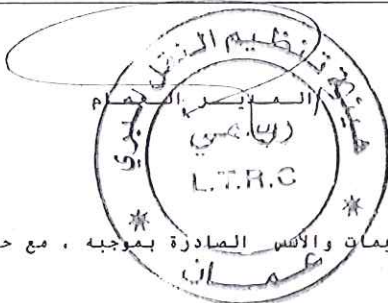 هيئة تنظيم النقل البري
المدير العام
L.T.R.C
عمان
يمات والأسس الصادرة بموجبه ، مع حـ